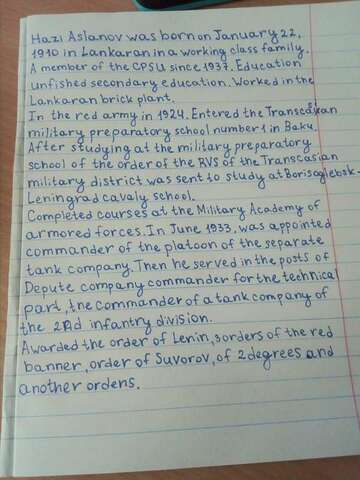 Hazi Aslanov was born on January 22,
1910 in Lankaran in a working class family.
A member of the CPSU since 1937. Education
unfished secondary education. Worked in the
Lankaran brick plant.
In the red army in 1924. Entered the Transcasian
military preparatory school number 1 in Baku.
After studying at the military preparatory
school of the order of the RVS of the Transcasian
military district was sent to study at Borisoglebsk-
Leningrad cavaly school.
Completed courses at the Military Academy of
armored forces. In June 1933, was appointed
commander of the platoon of the separate
tank company. Then he served in the posts of
Depute company commander for the technical
part, the commander of a tank company of
the 2nd infantry division.
Awarded the order of Lenin, 3 orders of the red
banner, order of Suvorov, of 2 degrees and
another orders.